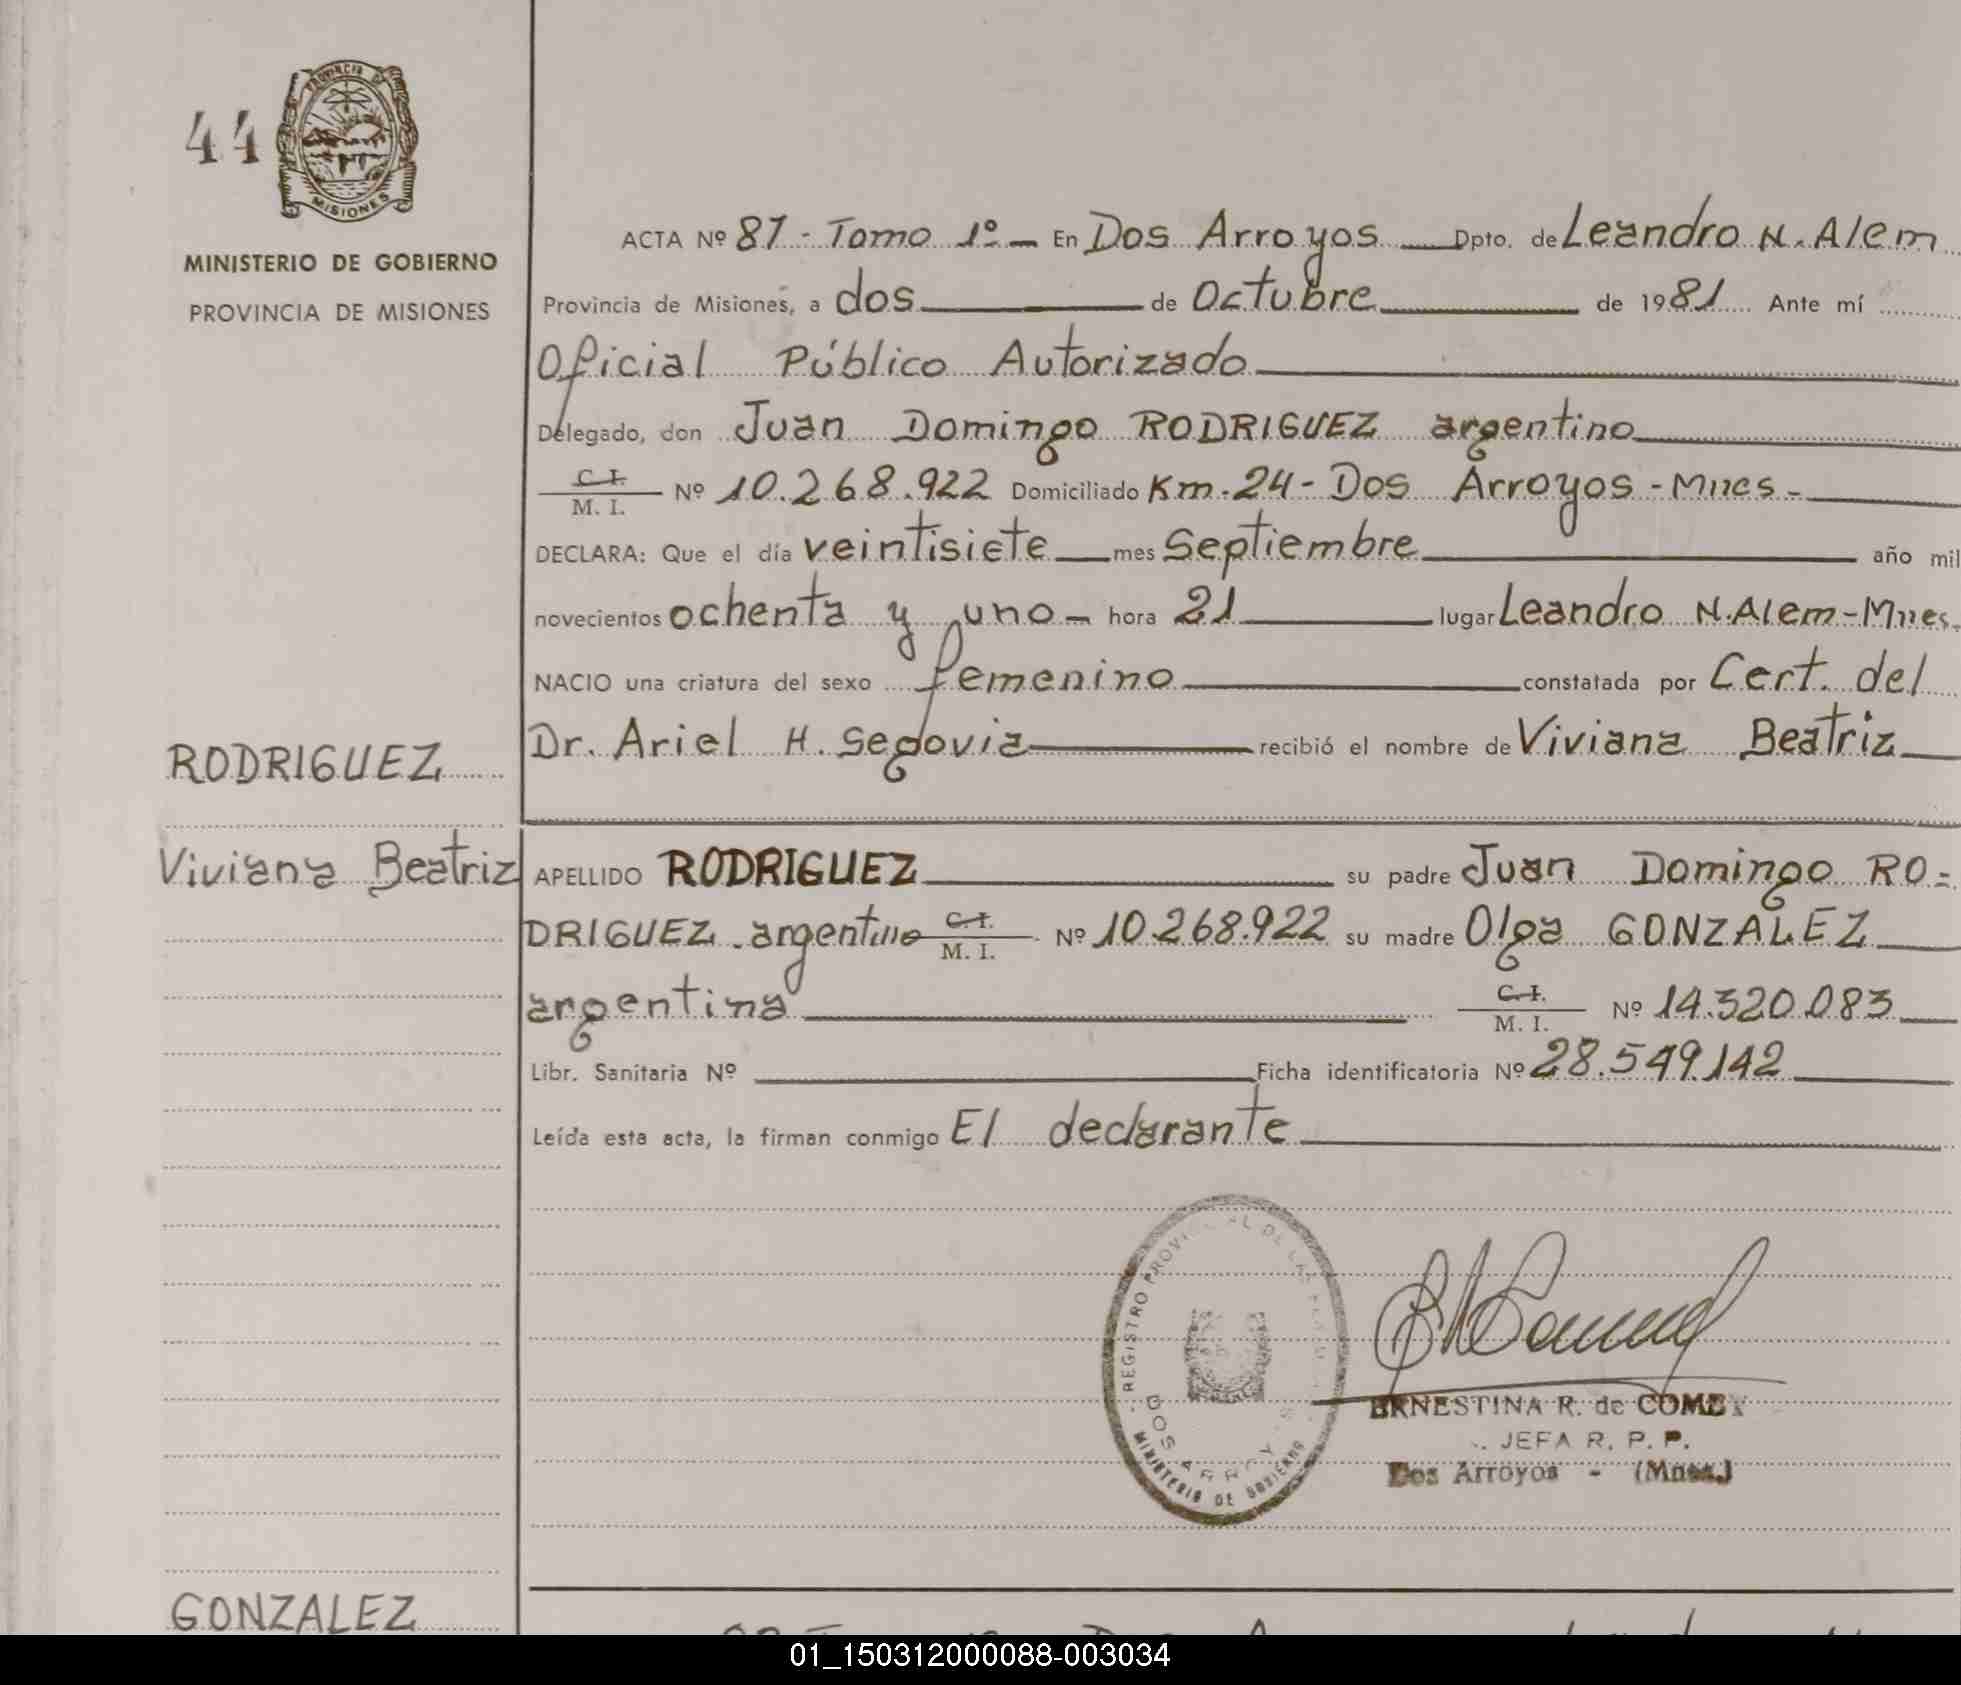 PROVINCIA DE
MISIONES
44
MINISTERIO DE GOBIERNO
PROVINCIA DE MISIONES
ACTA Nº 87 - Tomo 1º - En Dos Arroyos Dpto. de Leandro N. Alem
Provincia de Misiones, a dos de Octubre de 1981 Ante mí
Oficial Público Autorizado
Delegado, don Juan Domingo RODRIGUEZ argentino
C. I.
M. I. Nº 10.268.922 Domiciliado Km. 24 - Dos Arroyos - Mnes -
DECLARA: Que el día veintisiete mes Septiembre año mil
novecientos ochenta y uno - hora 21 lugar Leandro N. Alem - Mnes.
NACIO una criatura del sexo femenino constatada por Cert. del
Dr. Ariel H. Segovia recibió el nombre de Viviana Beatriz
RODRIGUEZ
Viviana Beatriz
APELLIDO RODRIGUEZ su padre Juan Domingo RO=
DRIGUEZ. argentino C. I. M. I. Nº 10.268.922 su madre Olga GONZALEZ
argentina C. I. M. I. Nº 14.320.083
Libr. Sanitaria Nº Ficha identificatoria Nº 28.549.142
Leída esta acta, la firman conmigo El declarante
REGISTRO PROVINCIAL DE LAS
DOS ARROYOS
MINISTERIO DE GOBIERNO
ERNESTINA R. de
JEFA R. P. P.
Dos Arroyos - (Mnes.)
GONZALEZ
01_150312000088-003034